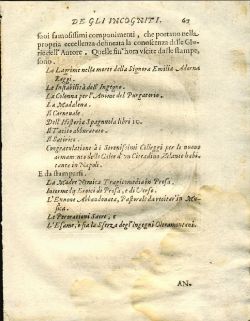 DE GLI INCOGNITI. 61
suoi famosissimi componimenti, che portano nella
propria eccellenza delineata la conoscenza delle Glo-
rie dell'Autore. Quelle sin'hora uscite dalle stampe,
sono.
Le Lagrime nella morte della Signora Emilia Adorna
Raggi.
La Instabilità dell'Ingegno.
La Colonna per l'Anime del Purgatorio.
La Madalena.
Il Carnevale.
Dell'Historia Spagnuola libri 10.
Il Tacito abburattato.
Il Satirico.
Congratulatione à i Serenissimi Colleggi per lo nuovo
armamento delle Galee d'un Cittadino Zelante habi-
tante in Napoli.
E da stamparsi.
La Madre Heroica Tragicomedia in Prosa.
Intermedij Eroici di Prosa, e di Verso.
L'Ennone Abbandonata, Pastorale da recitar in Mu-
sica.
Le Perorationi Sacre, e
L'Esame, ò sia la Sferza degl'Ingegni Oltramontani.
AN-